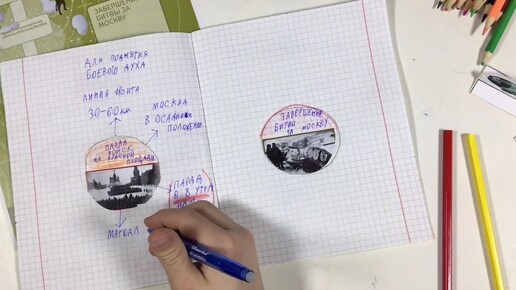 ЗАВЕРШЕНИЕ
БИТВЫ ЗА
МОСКВУ
ДЛЯ ПОДНЯТИЯ
БОЕВОГО ДУХА
ЛИНИЯ ФРОНТА
30-60 КМ
МОСКВА
В ОСАДНОМ
ПОЛОЖЕНИИ
ПАРАД
ВОЙСК
НА КРАСНОЙ
ПЛОЩАДИ
ПАРАД
В 8 УТРА
МАРШАЛ
ЗАВЕРШЕНИЕ
БИТВЫ
ЗА МОСКВУ